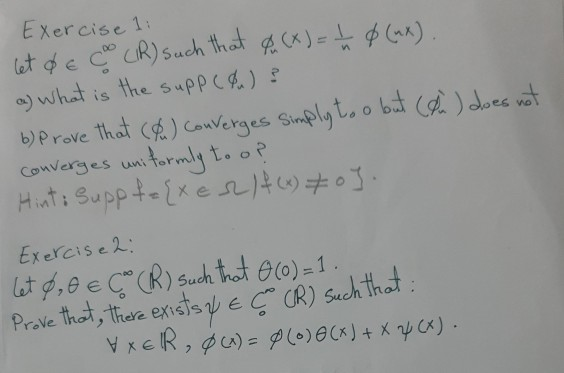 Exercise 1:
let ϕ ∈ C₀^∞ (ℝ) such that ϕₙ(x) = 1/n ϕ(nx).
a) What is the supp(ϕₙ) ?
b) Prove that (ϕₙ) converges simply to 0 but (ϕₙ') does not
converges uniformly to 0?
Hint: Supp f = {x ∈ Ω / f(x) ≠ 0}.
Exercise 2:
let ϕ, θ ∈ C₀^∞ (ℝ) such that θ(0) = 1.
Prove that, there exists ψ ∈ C₀^∞ (ℝ) such that:
∀ x ∈ ℝ, ϕ(x) = ϕ(0)θ(x) + x ψ(x).